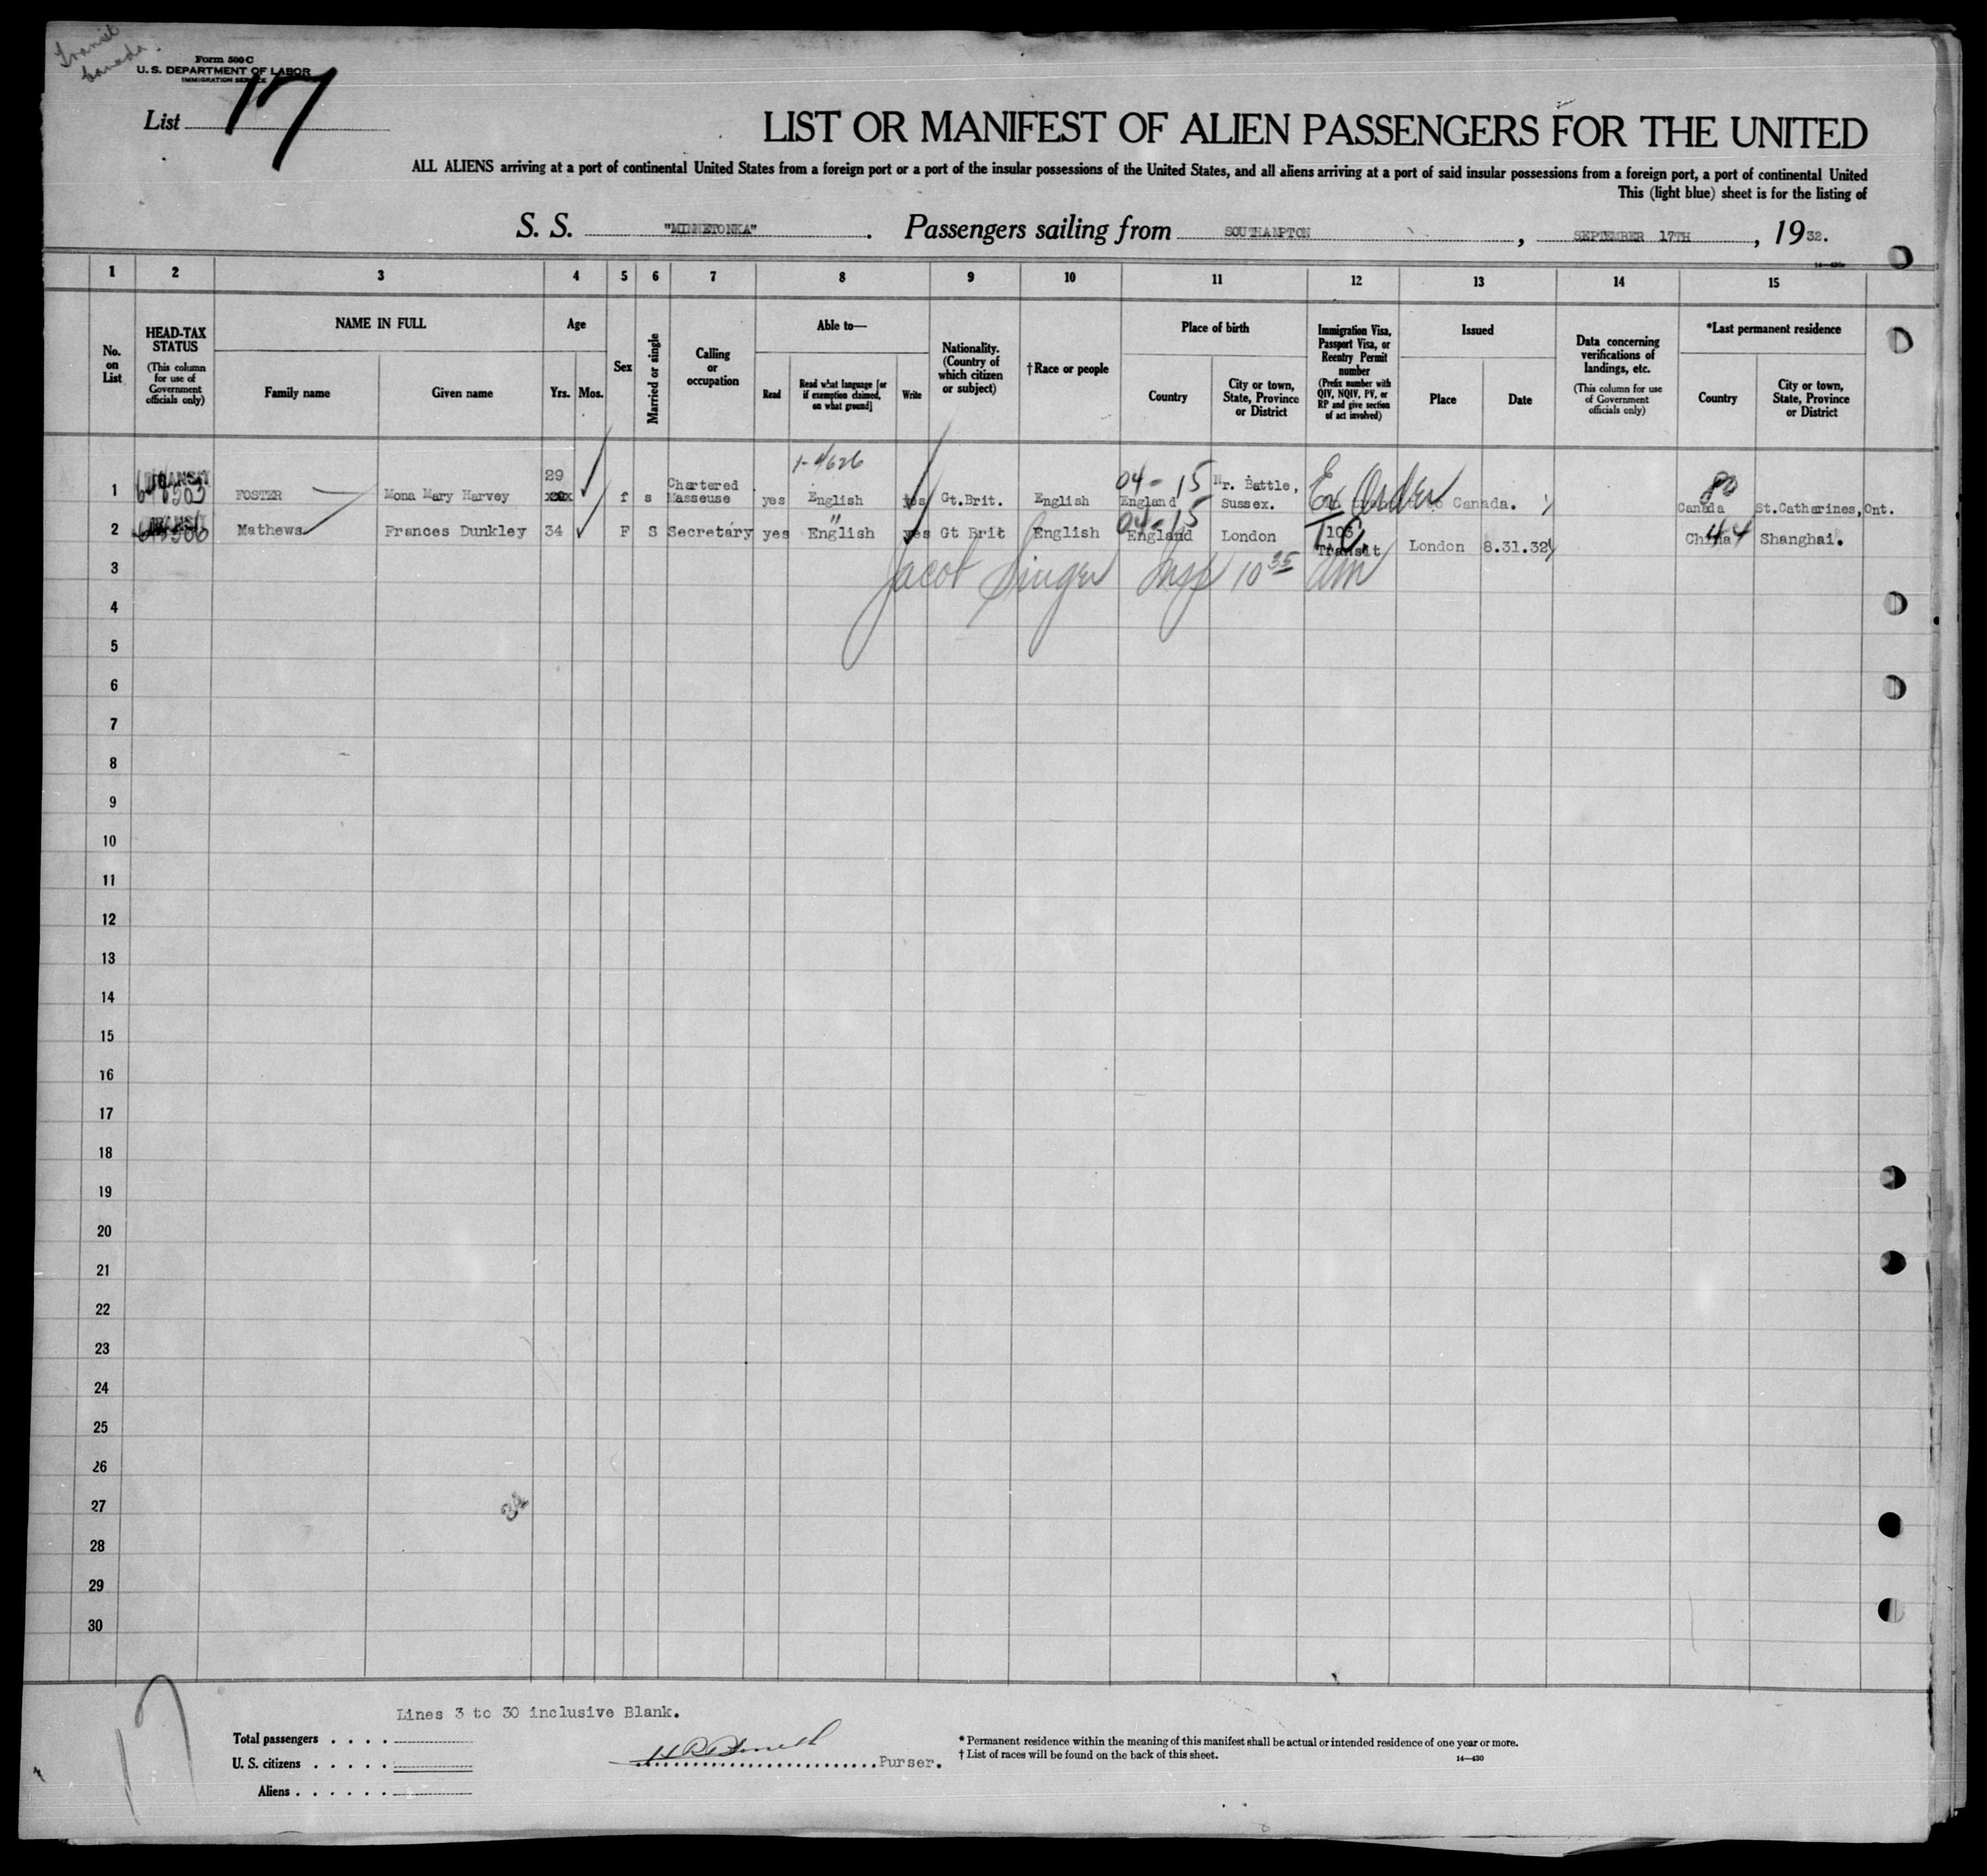 Transit
Canada.
Form 500 C
U. S. DEPARTMENT OF LABOR
IMMIGRATION SERVICE
List 17
LIST OR MANIFEST OF ALIEN PASSENGERS FOR THE UNITED
ALL ALIENS arriving at a port of continental United States from a foreign port or a port of the insular possessions of the United States, and all aliens arriving at a port of said insular possessions from a foreign port, a port of continental United
This (light blue) sheet is for the listing of
S. S. "MINNETONKA". Passengers sailing from SOUTHAMPTON, SEPTEMBER 17TH, 1932.
14—430
1 2 3 4 5 6 7 8 9 10 11 12 13 14 15
No. on List
HEAD-TAX STATUS
(This column for use of Government officials only)
NAME IN FULL
Family name
Given name
Age
Yrs. Mos.
Sex
Married or single
Calling or occupation
Able to—
Read
Read what language [or if exemption claimed, on what ground]
Write
Nationality. (Country of which citizen or subject)
†Race or people
Place of birth
Country
City or town, State, Province or District
Immigration Visa, Passport Visa, or Reentry Permit number
(Prefix number with QIV, NQIV, PV, or RP and give section of act involved)
Issued
Place
Date
Data concerning verifications of landings, etc.
(This column for use of Government officials only)
*Last permanent residence
Country
City or town, State, Province or District
1 TRANSIT FOSTER Mona Mary Harvey 29 xxx f s Chartered Masseuse yes English yes Gt.Brit. English 04-15 England Nr. Battle, Sussex. Ex Order to Canada. 80 Canada St.Catharines, Ont.
2 Mathews Frances Dunkley 34 F S Secretary yes English " yes Gt Brit English 04-15 England London T.C. Transit London 8.31.32 44 China Shanghai.
3 Jacob Singer Insp 10 35 am
4
5
6
7
8
9
10
11
12
13
14
15
16
17
18
19
20
21
22
23
24
25
26
27
28
29
30
17
Lines 3 to 30 inclusive Blank.
Total passengers . . . .
U. S. citizens . . . . .
Aliens . . . . . .
Purser.
* Permanent residence within the meaning of this manifest shall be actual or intended residence of one year or more.
† List of races will be found on the back of this sheet.
14—430